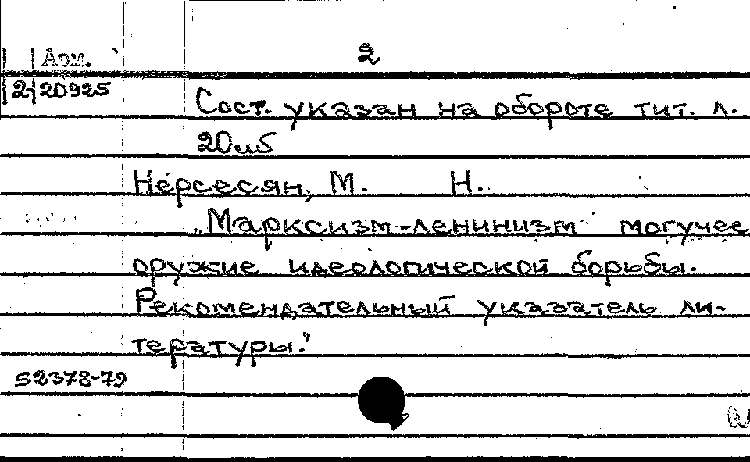 Арм. 2
2 20925
Сост. указан на обороте тит. л.
20см5
Нерсесян, М. Н.
„Марксизм-ленинизм могучее
оружие идеологической борьбы.
Рекомендательный указатель ли-
тературы."
52378-79